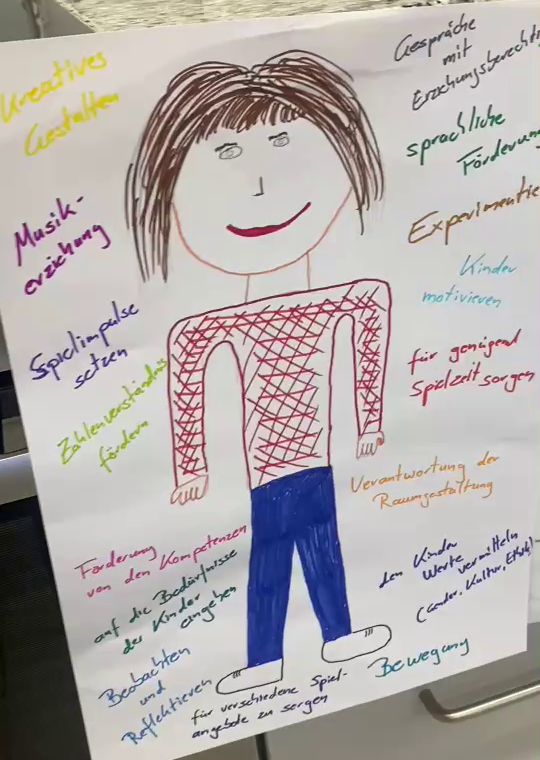 Kreatives
Gestalten
Musik-
erziehung
Spielimpulse
setzen
Zahlenverständnis
fördern
Förderung
von den Kompetenzen
auf die Bedürfnisse
der Kinder
eingehen
Beobachten
und
Reflektieren
für verschiedene Spiel-
angebote zu sorgen
Gespräche
mit
Erziehungsberechtig
sprachliche
Förderung
Experimentie
Kinder
motivieren
für genügend
Spielzeit sorgen
Verantwortung der
Raumgestaltung
den Kinder
Werte
vermitteln
(Gender, Kultur, Ethik)
Bewegung